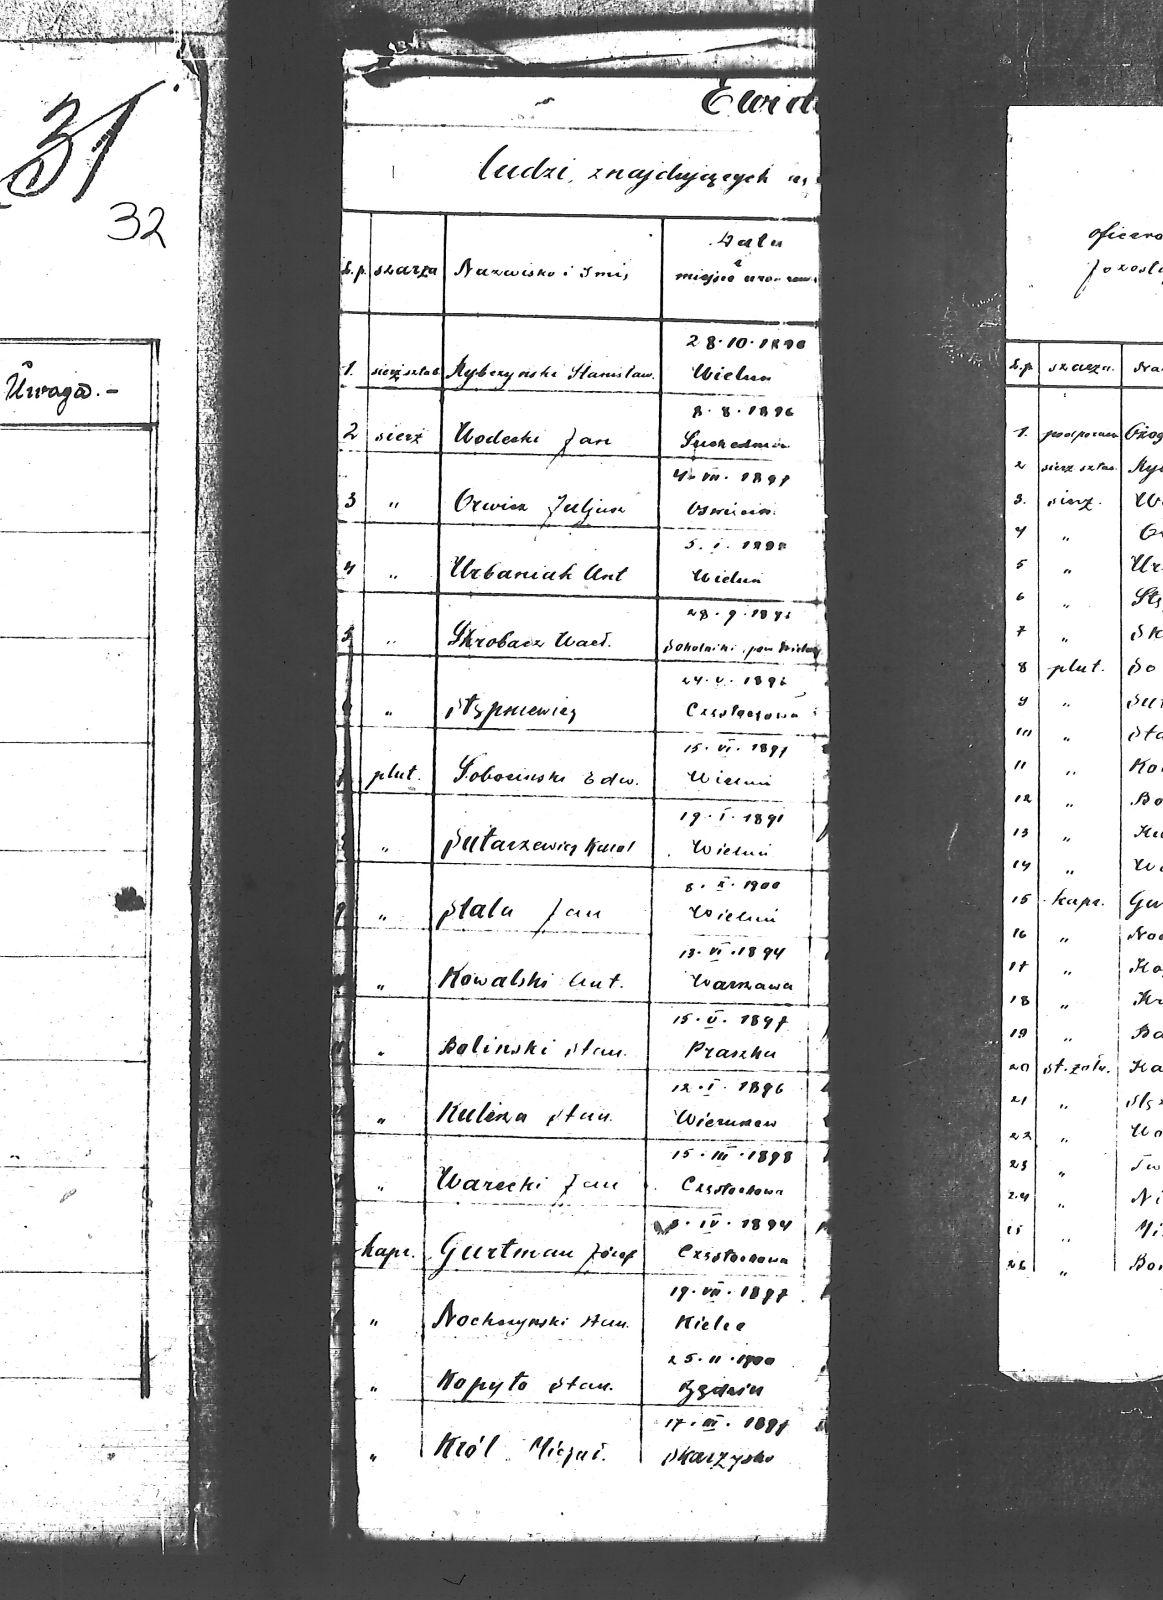 31
32
Uwaga.-
Ewid
ludzi, znajdujących
L.p. szarża Nazwisko i Imię Data i miejsce
28.10.1890
1. sierż sztab Rybczyński Stanisław. Wieluń
8.8.1896
2 sierż Wodecki Jan
VII. 1897
3 " Orwicz Juljusz
5. I. 1898
4 " Urbaniak Ant Wieluń
28.9.
5 " Skrobacz Wacł. Sokolniki, pow
24. V. 1896
" Stępniewicz Częstochowa
15. VI. 1897
plut. Sobociński Edw. Wieluń
19. I. 1891
" Sutarzewicz Karol Wieluń
8. X. 1900
9 " Stala Jan Wieluń
13. VI. 1894
" Kowalski Ant. Warszawa
15. V. 1897
" Boliński Stan. Praszka
12. I. 1896
" Kuleza Stan.
15. III. 1898
" Warecki Jan Częstochowa
IV. 1894
kapr. Gurtman Józef Częstochowa
19. VII. 1897
" Nochczyński Stan. Kielce
25. 11. 1900
" Kopyto Stan. Będzin
17. III. 1897
" Król Michał. Skarżysko
oficeró
pozosta
L.p. szarża. Na
1. podporucz
2 sierż sztab. Ry
3. sierż. W
4 " O
5 " Ur
6 " Stę
7 " Sk
8 plut. So
9 " Su
10 " Sta
11 " Ko
12 " Bo
13 " Ku
14 " W
15 kapr. Gu
16 " Noc
17 " Ko
18 " Kr
19 " Ba
20 st.żołn. Ka
21 "
22 " Wo
23 "
24 " Ni
25 " Mi
26 " Bo